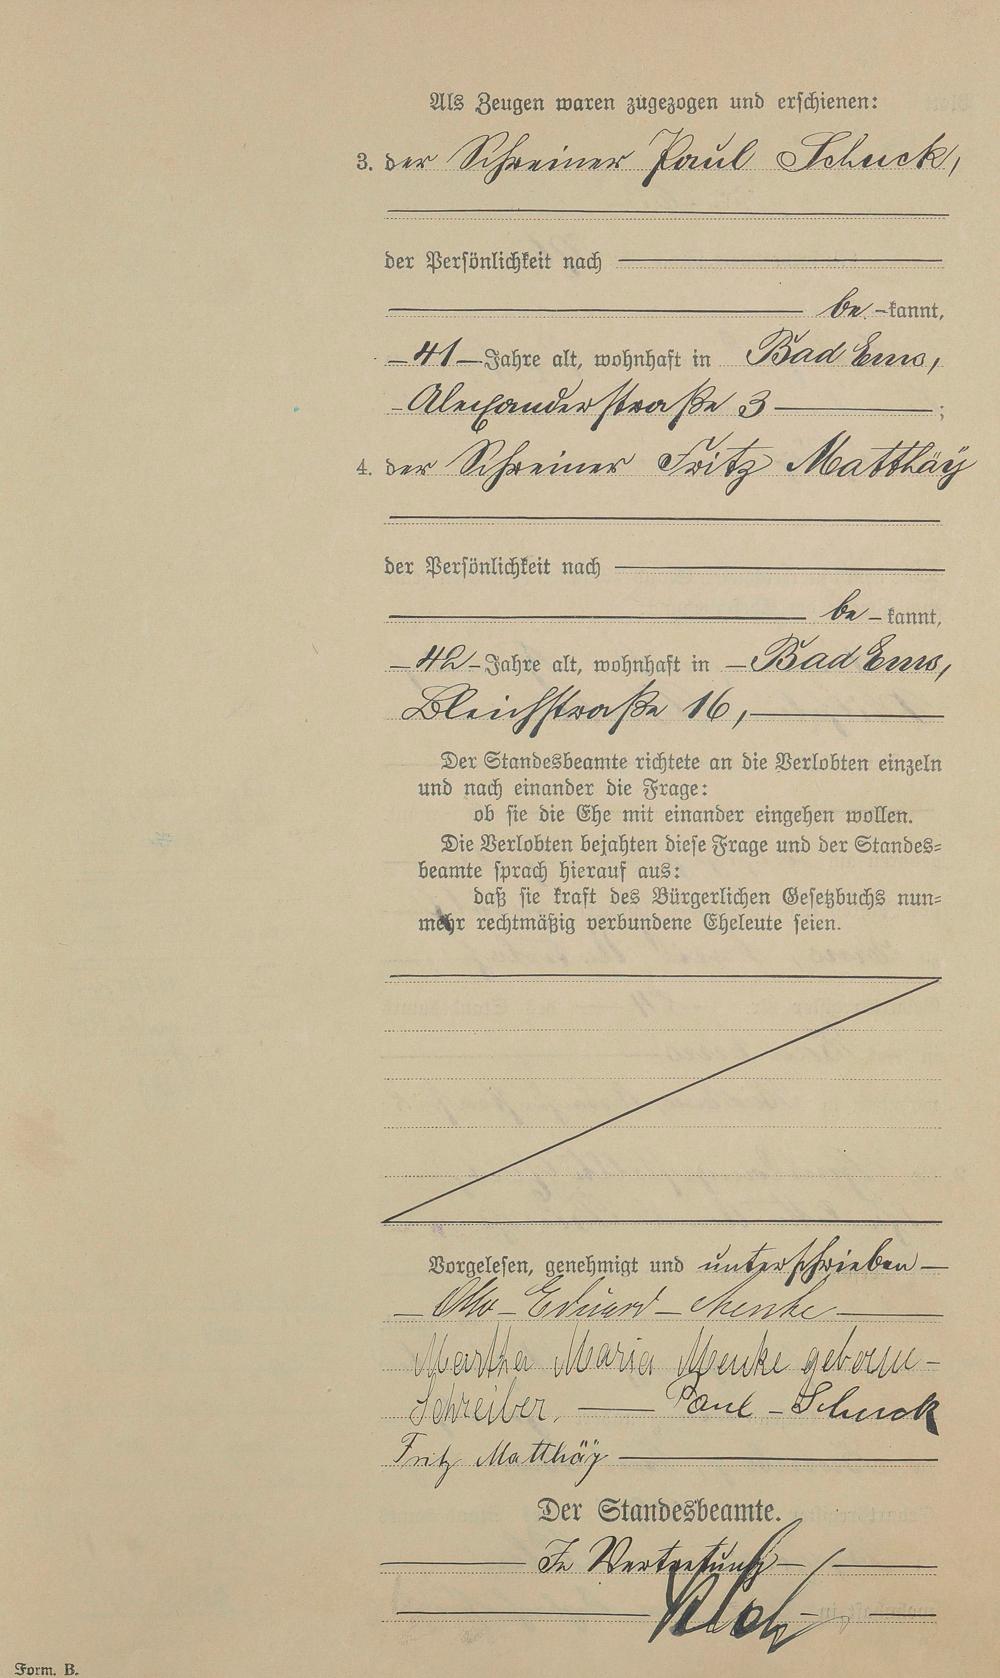 Als Zeugen waren zugezogen und erschienen:
3. der Schreiner Paul Schuck,
der Persönlichkeit nach
be-kannt,
41 Jahre alt, wohnhaft in Bad Ems,
Alexanderstraße 3;
4. der Schreiner Fritz Matthäy
der Persönlichkeit nach
be-kannt,
42 Jahre alt, wohnhaft in Bad Ems,
Bleichstraße 16,
Der Standesbeamte richtete an die Verlobten einzeln
und nach einander die Frage:
ob sie die Ehe mit einander eingehen wollen.
Die Verlobten bejahten diese Frage und der Standes=
beamte sprach hierauf aus:
daß sie kraft des Bürgerlichen Gesetzbuchs nun=
mehr rechtmäßig verbundene Eheleute seien.
Vorgelesen, genehmigt und unterschrieben
Otto Eduard Menke
Martha Maria Menke geborne
Schreiber. Paul Schuck
Fritz Matthäy
Der Standesbeamte.
In Vertretung
Form. B.